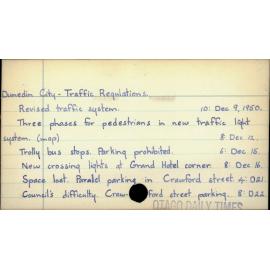 Dunedin City - Traffic Regulations.
Revised traffic system. 10: Dec 9, 1950.
Three phases for pedestrians in new traffic light
system. (map) 8 Dec 12.
Trolly bus stops. Parking prohibited. 6: Dec 15.
New crossing lights at Grand Hotel corner. 8: Dec 16.
Space lost. Parallel parking in Crawford street 4: D21
Council's difficulty. Crawford street parking. 8: D22
OTAGO DAILY TIMES